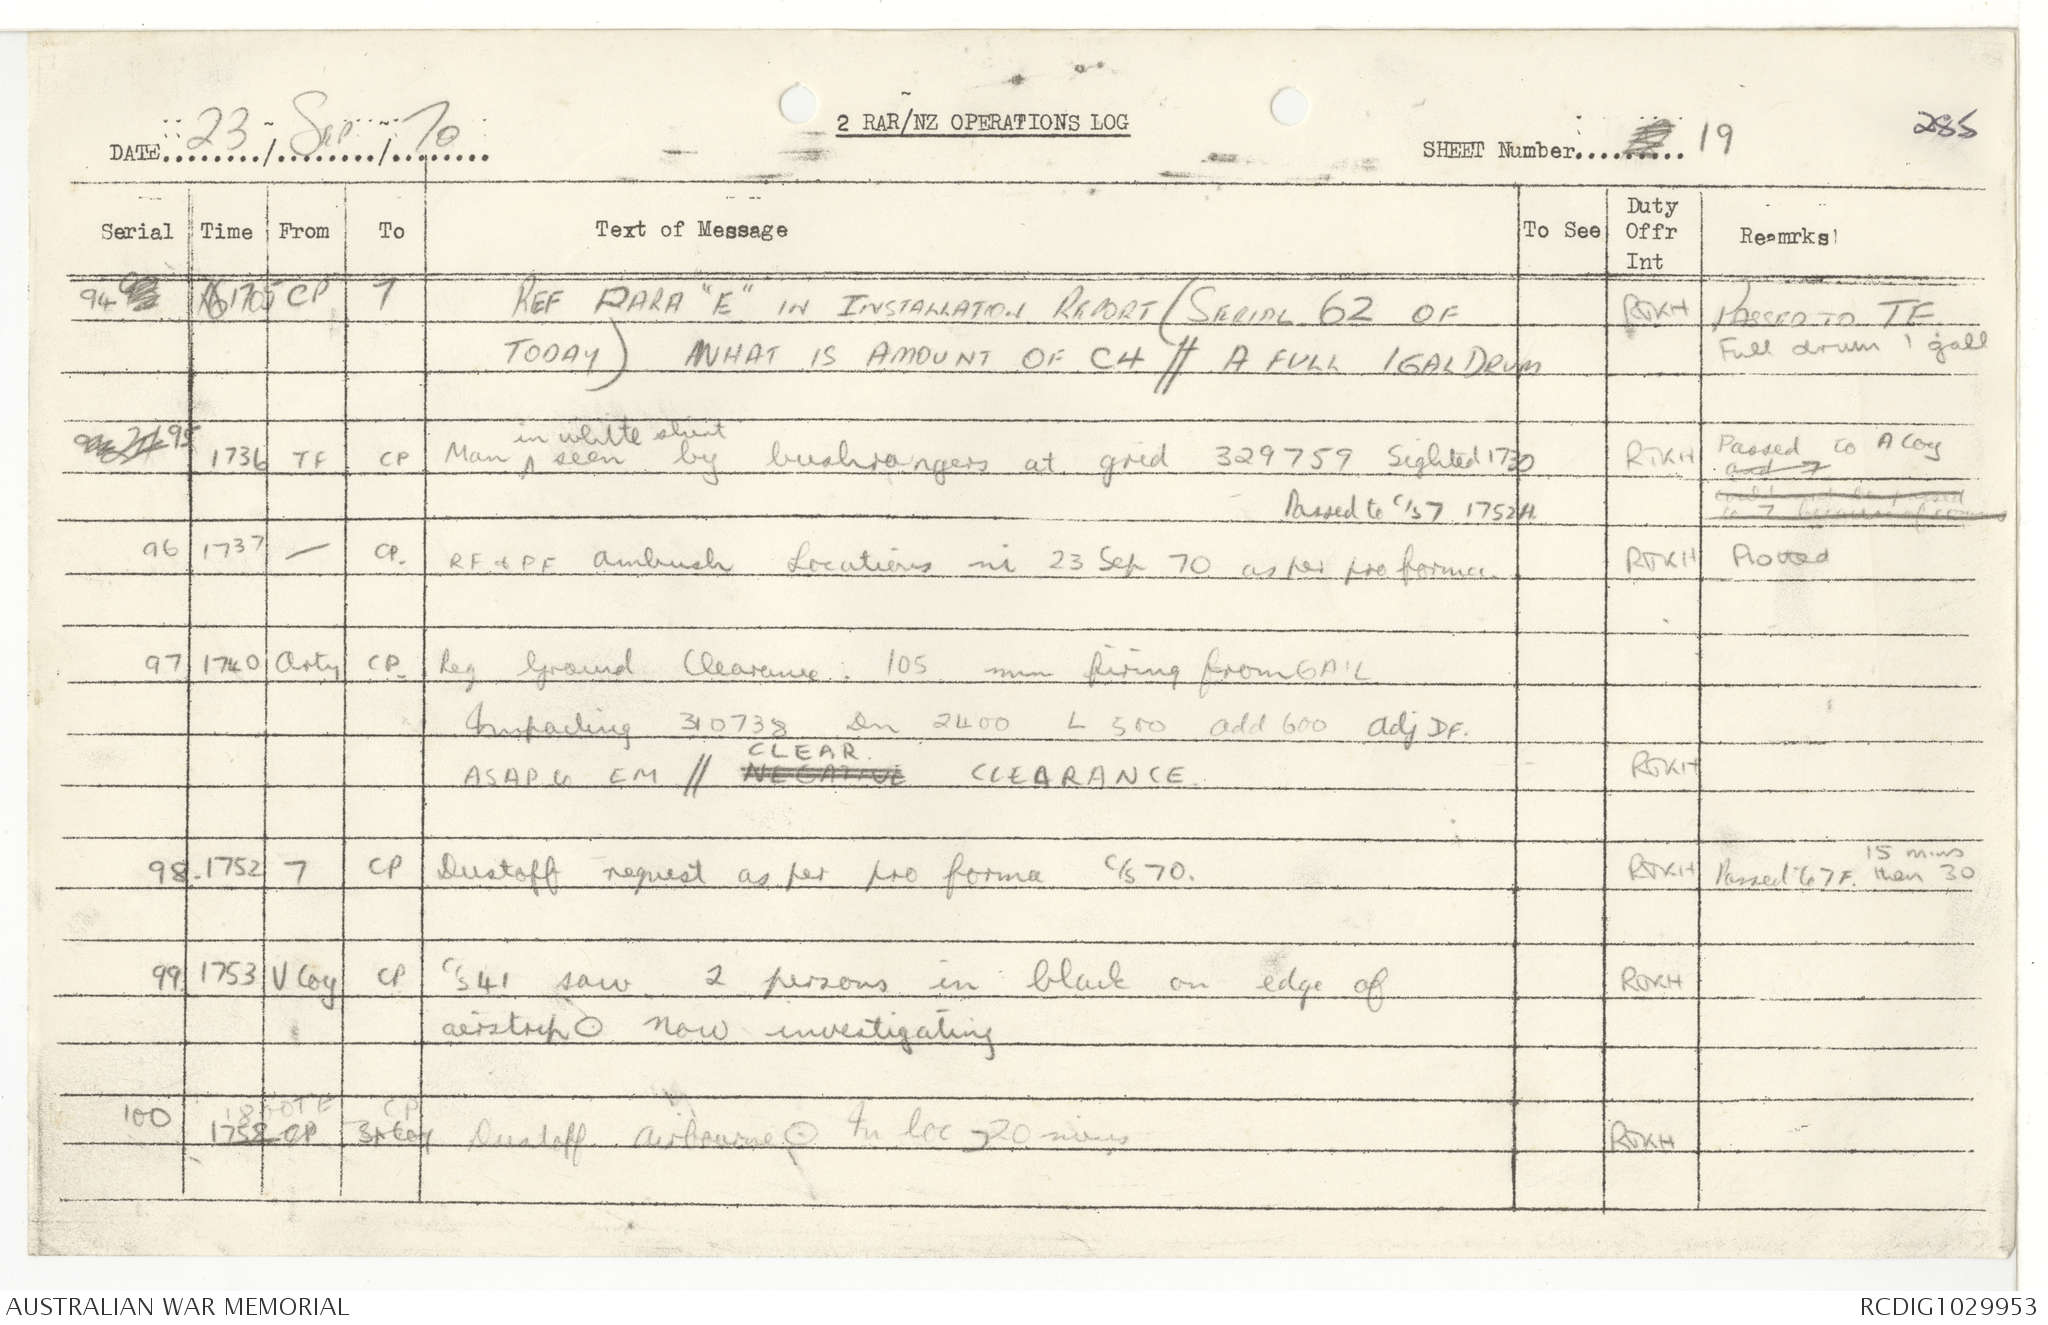 285
2 RAR/NZ OPERATIONS LOG
DATE 23 / Sep / 70
SHEET Number 19
Serial Time From To Text of Message To See Duty Offr Int Reamrks
94 1705 CP 7 REF PARA "E" IN INSTALLATION REPORT (SERIAL 62 OF RTKH PASSED TO TF
TODAY) WHAT IS AMOUNT OF C4 // A FULL 1 GAL DRUM Full drum 1 gall
95 1736 TF CP Man in white shirt seen by bushrangers at grid 329759 Sighted 1730 RTKH Passed to A Coy
and 7
Passed to C/S 7 1752H.
96 1737 — CP. RF & PF ambush Locations ni 23 Sep 70 as per pro forma. RTKH Plotted
97 1740 Arty CP. Req Ground Clearance. 105 mm firing from GAIL
Impacting 310738 Dn 2400 L 500 add 600 Adj DF.
CLEAR
ASAP to EM // NEGATIVE CLEARANCE. RTKH
98. 1752 7 CP Dustoff request as per pro forma C/S 70. RTKH Passed to 7F. 15 mins then 30
99 1753 V Coy CP C/S 41 saw 2 persons in black on edge of RTKH
airstrip O Now investigating
100 1800 TF CP
1758 CP Dustoff airbourne O In loc 20 mins RTKH
AUSTRALIAN WAR MEMORIAL
RCDIG1029953